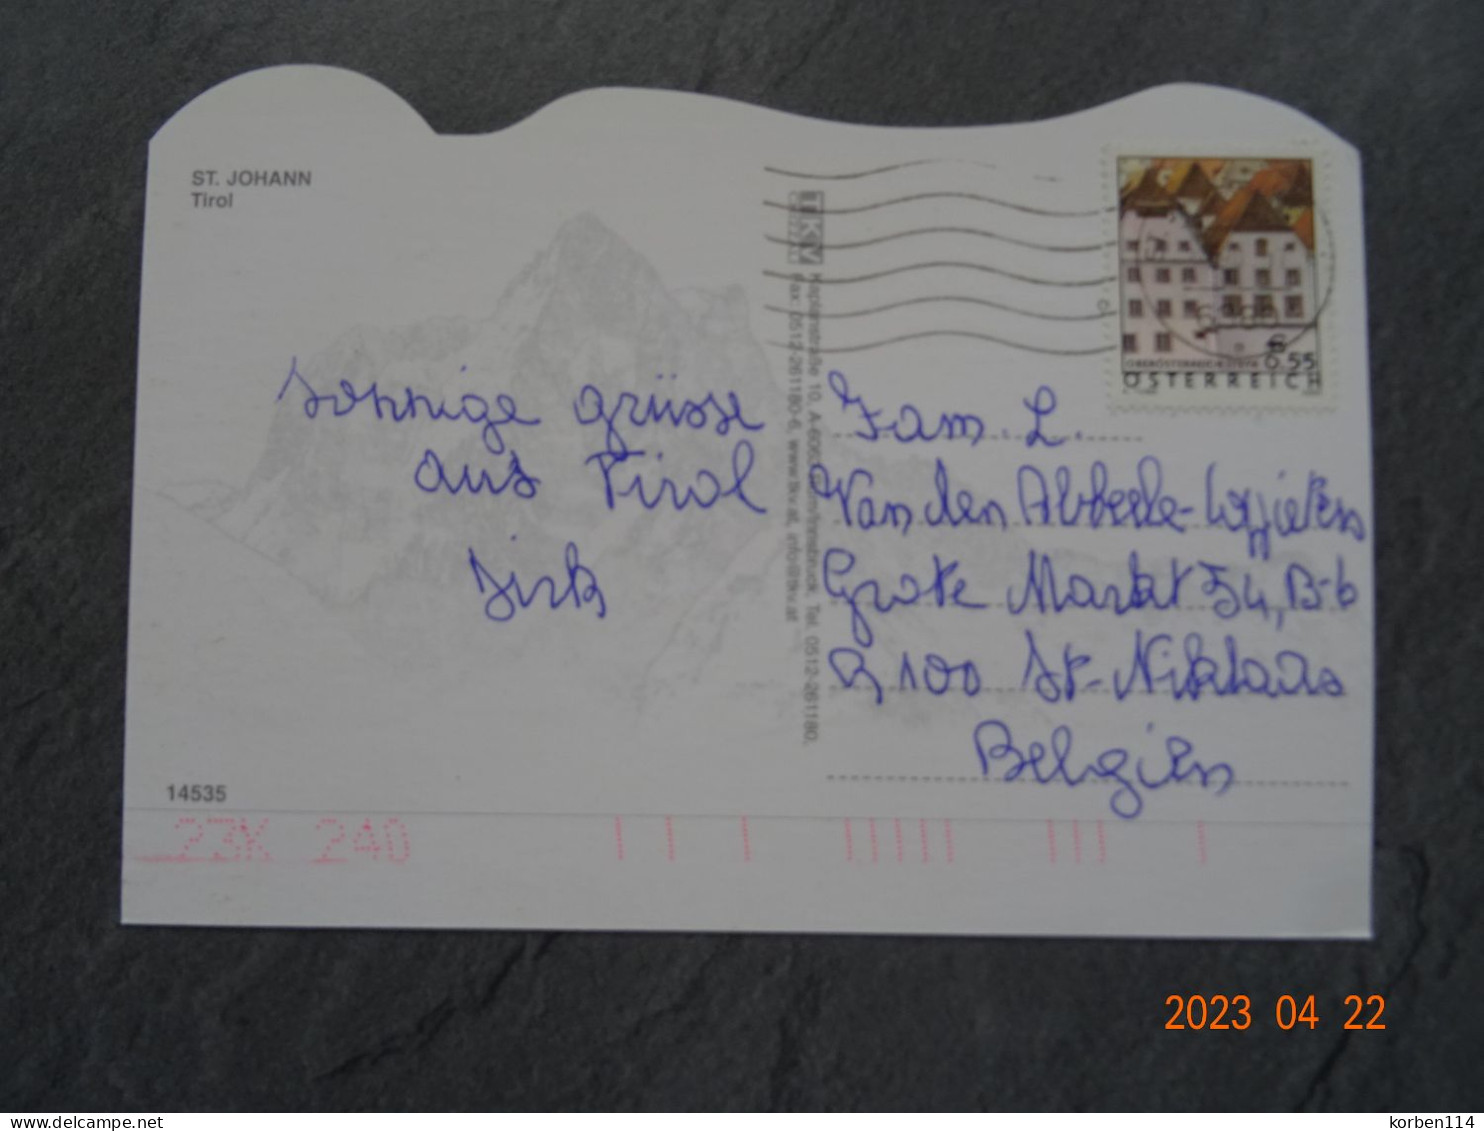 ST. JOHANN
Tirol
sonnige grüsse
aus Tirol
Dirk
Kaplanstraße 10, A-6063 Rum/Innsbruck, Tel. 0512-261180,
Fax: 0512-261180-6, www.lkv.at, info@lkv.at
€ 0.55
ÖSTERREICH
Fam. L.
Van den Abbeele-
Grote Markt 54, B-6
9100 St-Niklaas
Belgien
14535
23K 240
2023 04 22
korben114